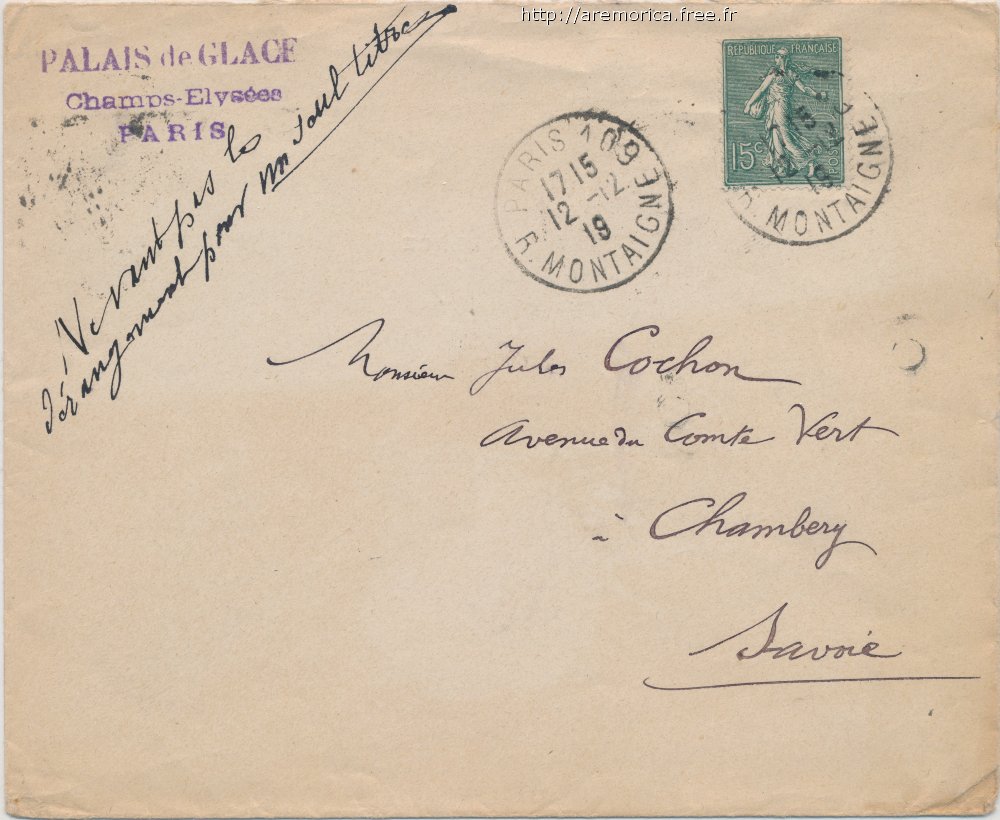 http://aremorica.free.fr
PALAIS de GLACE
Champs-Elysées
PARIS
pas le
dérangement pour un seul titre
PARIS 109
1715
12 -12
19
R. MONTAIGNE
REPUBLIQUE FRANÇAISE
15c
POSTES
R. MONTAIGNE
Monsieur Jules Cochon
Avenue du Comte Vert
à Chambery
Savoie